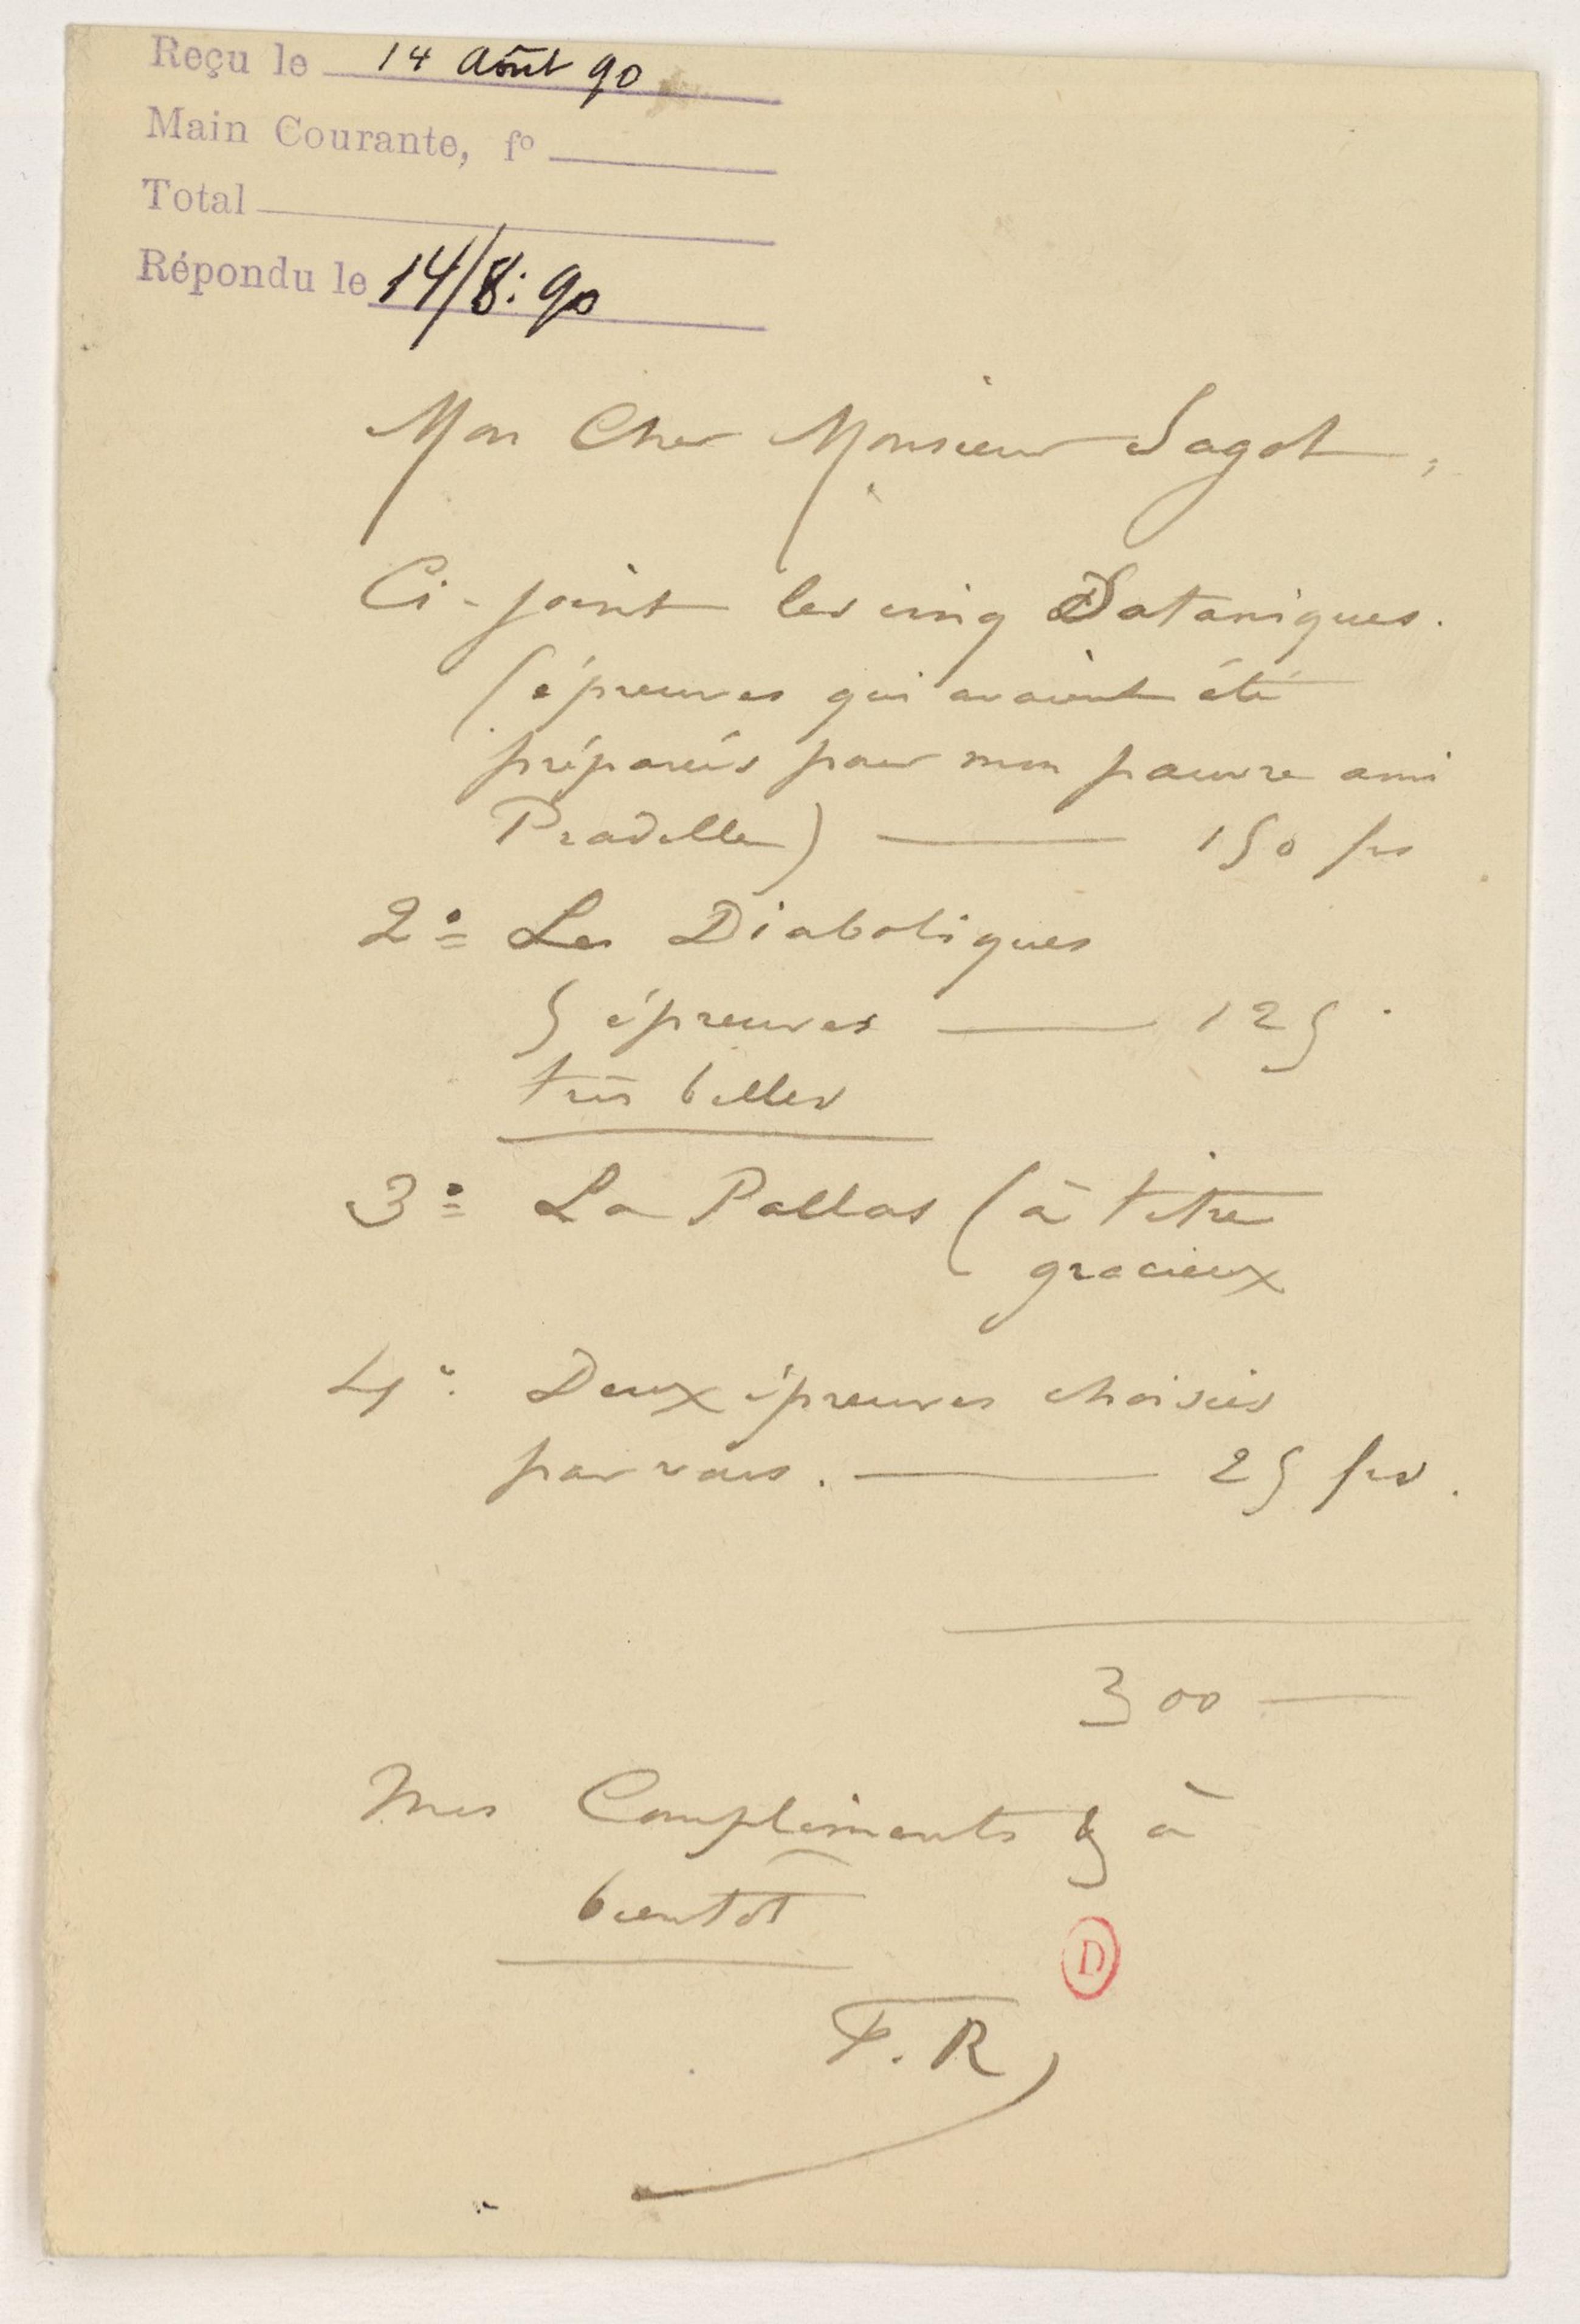 Reçu le 14 Août 90
Main Courante, fº
Total
Répondu le 14/8: 90
Mon Cher Monsieur Sagot,
Ci-joint les cinq Sataniques.
(épreuves qui avaient été
préparées pour mon pauvre ami
Pradelle) — 150 frs
2º Les Diaboliques
5 épreuves — 125
très belles
3º La Pallas (à titre
gracieux
4º. Deux épreuves choisies
par vous. — 25 frs.
300 —
Mes Compliments & à
bientôt
D
F. R